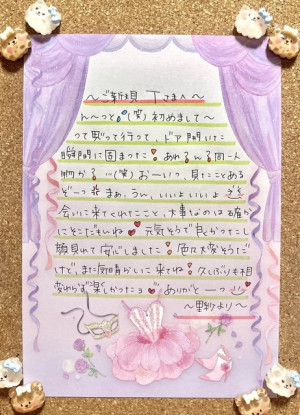 ～ご新規 Tさまへ～
ん～っと(笑)初めまして～
って思って行って、ドア開いた
瞬間に固まった!あれ?ん?同一人
物か?…(笑)おーいっ、見たことある
ぞーっ まぁ、うん、いいよいいよ
会いに来てくれたこと、大事なのは確か
にそこだもいね 元気そうで良かったし
顔見れて安心しました!色々大変そうだ
けど、また気晴らしに来てね!久しぶりも相
変わらず楽しかったョ ありがとーっ
～里紗より～